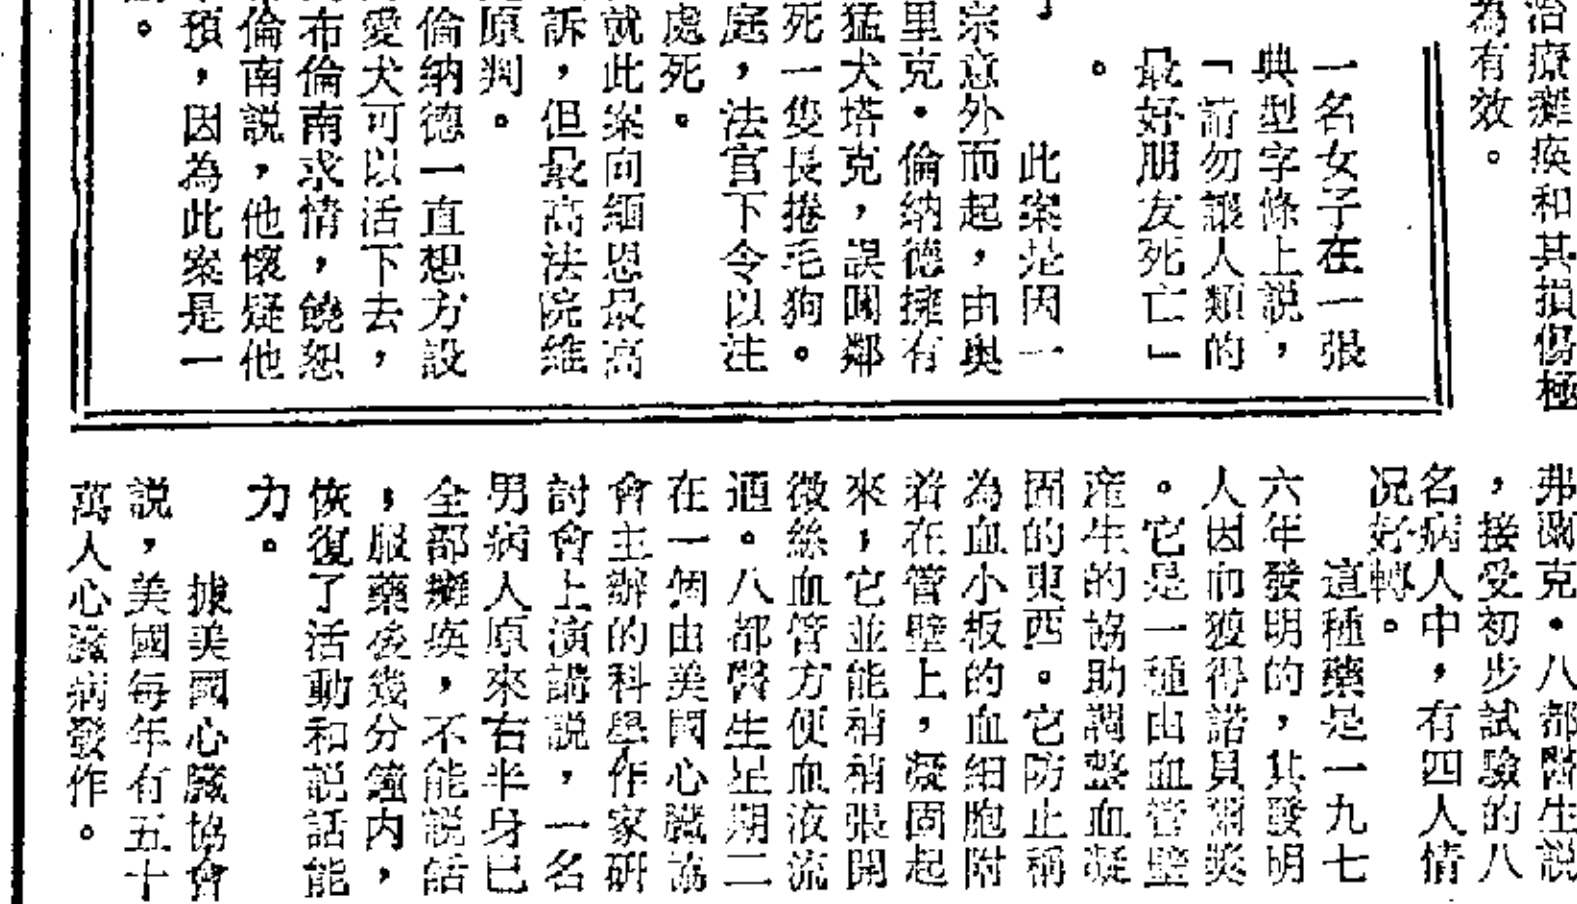 治療癱瘓和其損傷極
為有效。
一名女子在一張
典型字條上說，
「請勿讓人類的
最好朋友死亡」
。
此案是因一
宗意外而起，由奧
里克·倫納德擁有
猛犬塔克，誤闖鄰
死一隻長捲毛狗。
庭，法官下令以注
處死。
就此案向緬恩最高
訴，但最高法院維
原判。
倫納德一直想方設
愛犬可以活下去，
布倫南求情，饒恕
倫南説，他懷疑他
預，因為此案是一
。
弗蘭克·八都醫生説
，接受初步試驗的八
名病人中，有四人情
況好轉。
這種藥是一九七
六年發明的，其發明
人因而獲得諾貝爾獎
。它是一種由血管壁
産生的協助調整血凝
固的東西。它防止稱
為血小板的血細胞附
着在管壁上，凝固起
來，它並能稍稍張開
微絲血管方便血液流
通。八都醫生星期二
在一個由美國心臟協
會主辦的科學作家研
討會上演講説，一名
男病人原來右半身已
全部癱瘓，不能説話
，服藥後幾分鐘内，
恢復了活動和説話能
力。
據美國心臟協會
説，美國每年有五十
萬人心臟病發作。